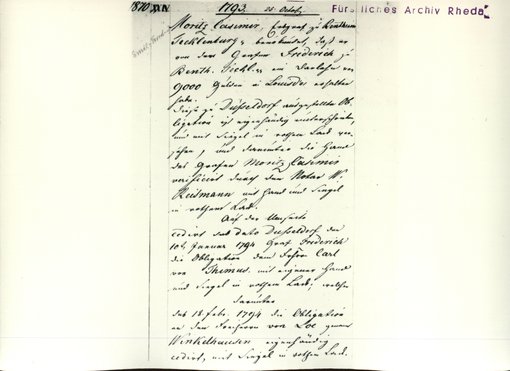 1870 XIV 1793. 28. Octobr. Fürstliches Archiv Rheda
Moritz Casimir, Erbgraf zu Bentheim
Tecklenburg, beurkundet, daß er
von dem Grafen Friederich zu
Benth. Teckl. ein Darlehn von
9000 Gulden in Louisdor erhalten
habe.
Diese zu Düsseldorf ausgestellte Ob-
ligation ist eigenhändig unterschrieben,
und mit Siegel in rothem Lack ver-
sehen, und darunter die Hand
des Grafen Moritz Casimir
verificirt durch den Notar W.
Reitmann mit Hand und Siegel
in rothem Lack.
Auf der Umseite
cedirt sub dato Düsseldorf den
10t. Januar 1794 Graf Friederich
die Obligation dem Carl
von Thimus mit eigener Hand
und Siegel in rothem Lack, welcher
darunter
sub 18 Febr. 1794 die Obligation
an den Freiherrn von Loe
Winkelhausen eigenhändig
cedirt, mit Siegel in rothem Lack.